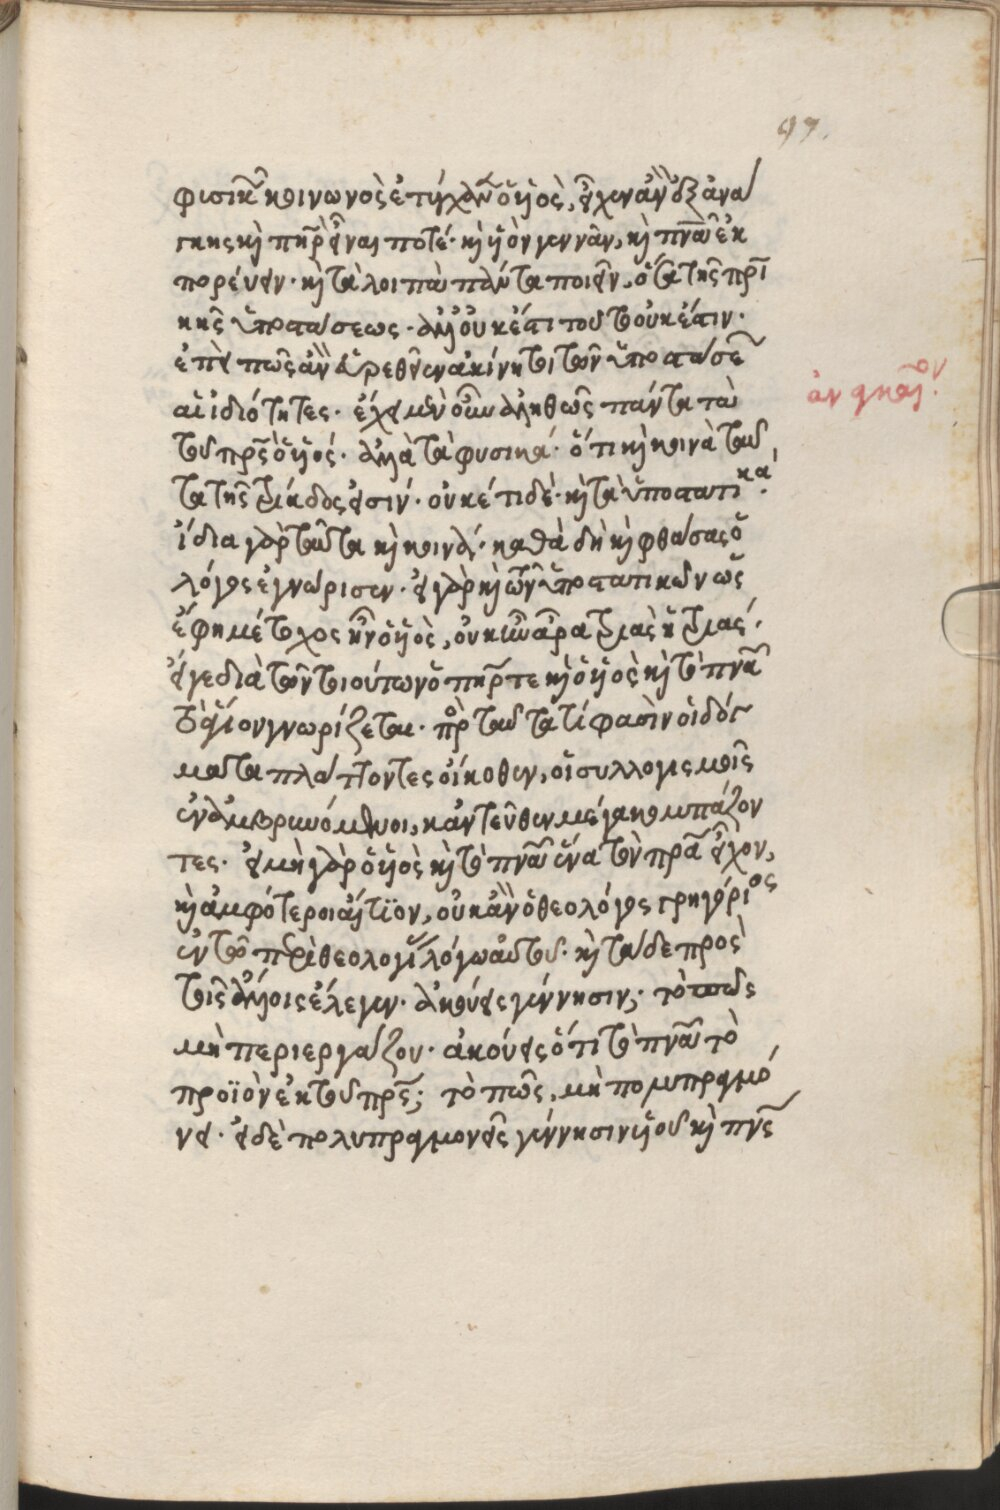 97.
φυσικῶν κοινωνὸς ἐτύγχανεν ὁ υἱὸς, εἶχεν ἂν ἐξ ἀνάγ
κης καὶ πατὴρ εἶναι ποτέ· καὶ υἱὸν γεννᾶν, καὶ πνεῦμα ἐκ
πορεύειν· καὶ τὰ λοιπὰ πάντα ποιεῖν, ὅσα τῆς πατρι
κῆς ὑποστάσεως· ἀλλ' οὐκ ἔστι τοῦτο οὐκ ἔστιν·
ἐπεὶ πῶς ἂν εὑρεθεῖεν ἀκίνητοι τῶν ὑποστάσεων
αἱ ἰδιότητες· ἔχει μὲν οὖν ἀληθῶς πάντα τὰ
τοῦ πατρὸς ὁ υἱός· ἀλλὰ τὰ φυσικά· ὅτι καὶ κοινὰ ταῦ
τα τῆς τριάδος εἰσίν· οὐκέτι δὲ· καὶ τὰ ὑποστατικά·
ἴδια γὰρ ταῦτα καὶ οὐ κοινά· καθὰ δὴ καὶ φθάσας ὁ
λόγος ἐγνώρισεν· εἰ γὰρ καὶ τῶν ὑποστατικῶν ὡς
ἔφη μέτοχος ἦν ὁ υἱὸς, οὐκ ἦν ἄρα τριὰς ἡ τριάς·
εἴγε διὰ τῶν τοιούτων ὁ πατήρ τε καὶ ὁ υἱὸς καὶ τὸ πνεῦμα
τὸ ἅγιον γνωρίζεται· πρὸς ταῦτα τί φασὶν οἱ δόγ
ματα πλάττοντες οἴκοθεν, οἱ συλλογισμοῖς
ἐναβρυνόμενοι, κἀντεῦθεν μέγα κομπάζον
τες· εἰ μὴ γὰρ ὁ υἱὸς καὶ τὸ πνεῦμα ἕνα τὸν πατέρα εἶχον,
καὶ ἀμφότεροι αἴτιον, οὐκ ἂν ὁ θεολόγος γρηγόριος
ἐν τῷ περὶ θεολογίας λόγῳ αὐτοῦ· καὶ τάδε πρὸς
τοῖς ἄλλοις ἔλεγεν· ἀκούεις γέννησιν; τὸ πῶς
μὴ περιεργάζου· ἀκούεις ὅτι τὸ πνεῦμα τὸ
προϊὸν ἐκ τοῦ πατρός; τὸ πῶς, μὴ πολυπραγμό
νει· εἰ δὲ πολυπραγμονεῖς γέννησιν υἱοῦ καὶ πνεύματος